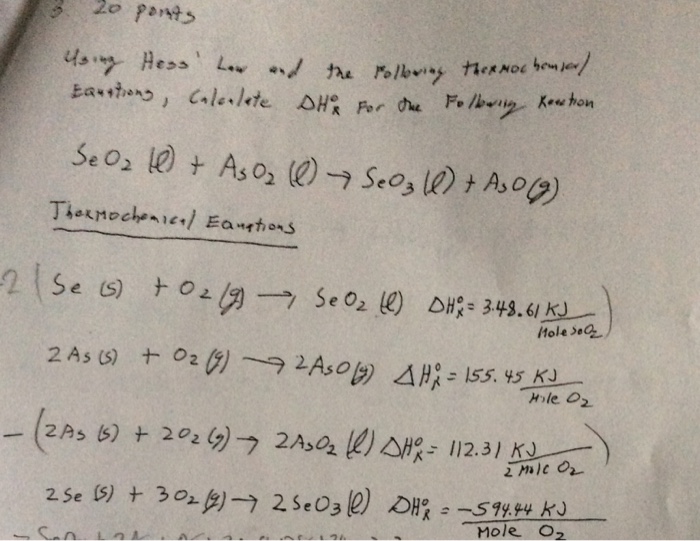 3 20 points
Using Hess' Law and the Following Thermochemical
Equations, Calculate ΔH°R For the Following Reaction
SeO2 (l) + AsO2 (l) → SeO3 (l) + AsO (g)
Thermochemical Equations
-2 ( Se (s) + O2 (g) → SeO2 (l) ΔH°R = 348.61 KJ / Mole SeO2 )
2As (s) + O2 (g) → 2AsO (g) ΔH°R = 155.45 KJ / Mole O2
- (2As (s) + 2O2 (g) → 2AsO2 (l) ΔH°R = 112.31 KJ / 2 Mole O2 )
2Se (s) + 3O2 (g) → 2SeO3 (l) ΔH°R = -594.44 KJ / Mole O2